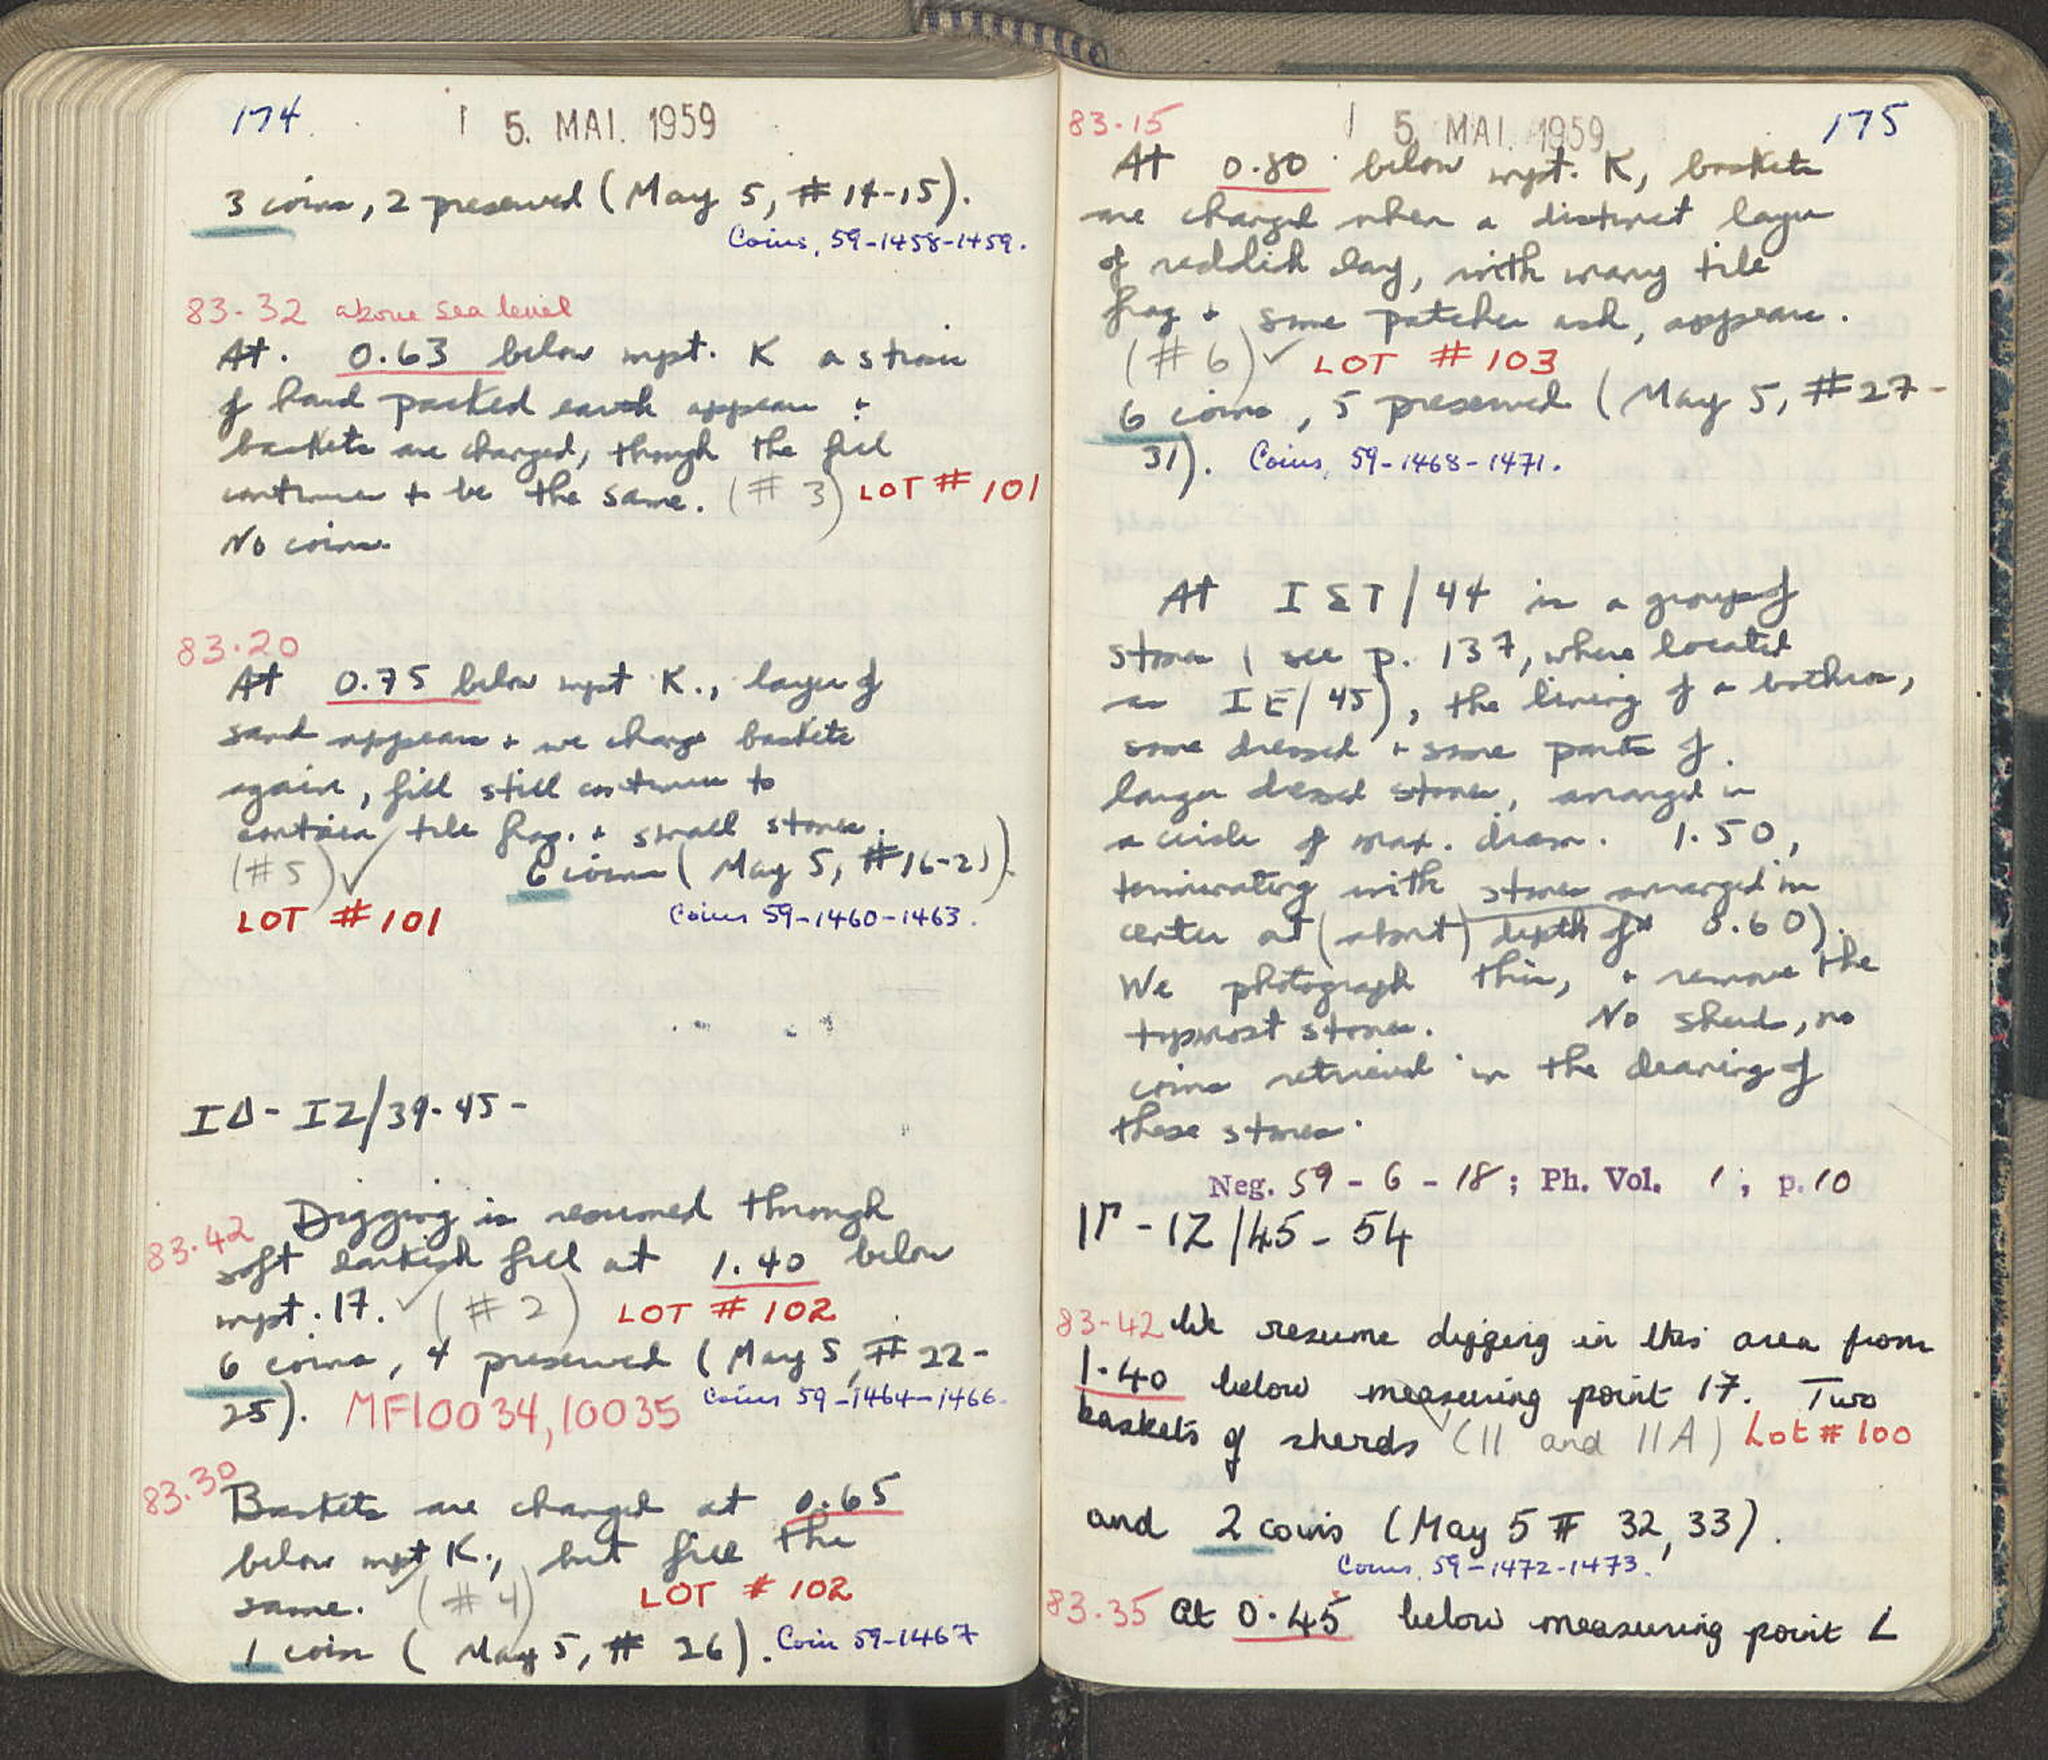 174
5. MAI. 1959
3 coins, 2 preserved (May 5, # 14-15).
Coins, 59-1458-1459.
83-32 above sea level
At. 0.63 below mpt. K a stratum
of hard packed earth appears +
baskets are changed, though the fill
continues to be the same. (# 3) LOT # 101
No coins.
83.20
At 0.75 below mpt K., layer of
sand appears + we change baskets
again, fill still continues to
contain tile frag. + small stones.
(#5) ✓ 6 coins (May 5, #16-21).
LOT # 101 Coins 59-1460-1463.
ΙΔ- ΙΖ/39-45-
Digging is resumed through
83.42 soft darkish fill at 1.40 below
mpt. 17. ✓ (# 2) LOT # 102
6 coins, 4 preserved (May 5, # 22-
25). MF10034, 10035 Coins 59-1464-1466.
83.30 Baskets are changed at 0.65
below mpt K., but fill the
same. ✓ (# 4) LOT # 102
1 coin (May 5, # 26). Coin 59-1467
83-15
5. MAI. 1959
175
At 0.80 below mpt. K, baskets
are changed when a distinct layer
of reddish clay, with many tile
frag + some patches ash, appears.
(# 6) ✓ LOT # 103
6 coins, 5 preserved (May 5, #27-
31). Coins, 59-1468-1471.
At ΙΣΤ/44 is a group of
stones (see p. 137, where located
as ΙΕ/45), the lining of a bothros,
some dressed + some parts of
larger dressed stones, arranged in
a circle of max. diam. 1.50,
terminating with stones arranged in
center at (about) depth of 0.60).
We photograph this, + remove the
topmost stones. No sherds, no
coins retrieved in the clearing of
these stones.
Neg. 59-6-18; Ph. Vol. 1; p.10
ΙΓ-ΙΖ/45-54
83-42 We resume digging in this area from
1.40 below measuring point 17. Two
baskets of sherds ✓ (11 and 11A) Lot # 100
and 2 coins (May 5 # 32, 33).
Coins, 59-1472-1473.
83.35 At 0.45 below measuring point L